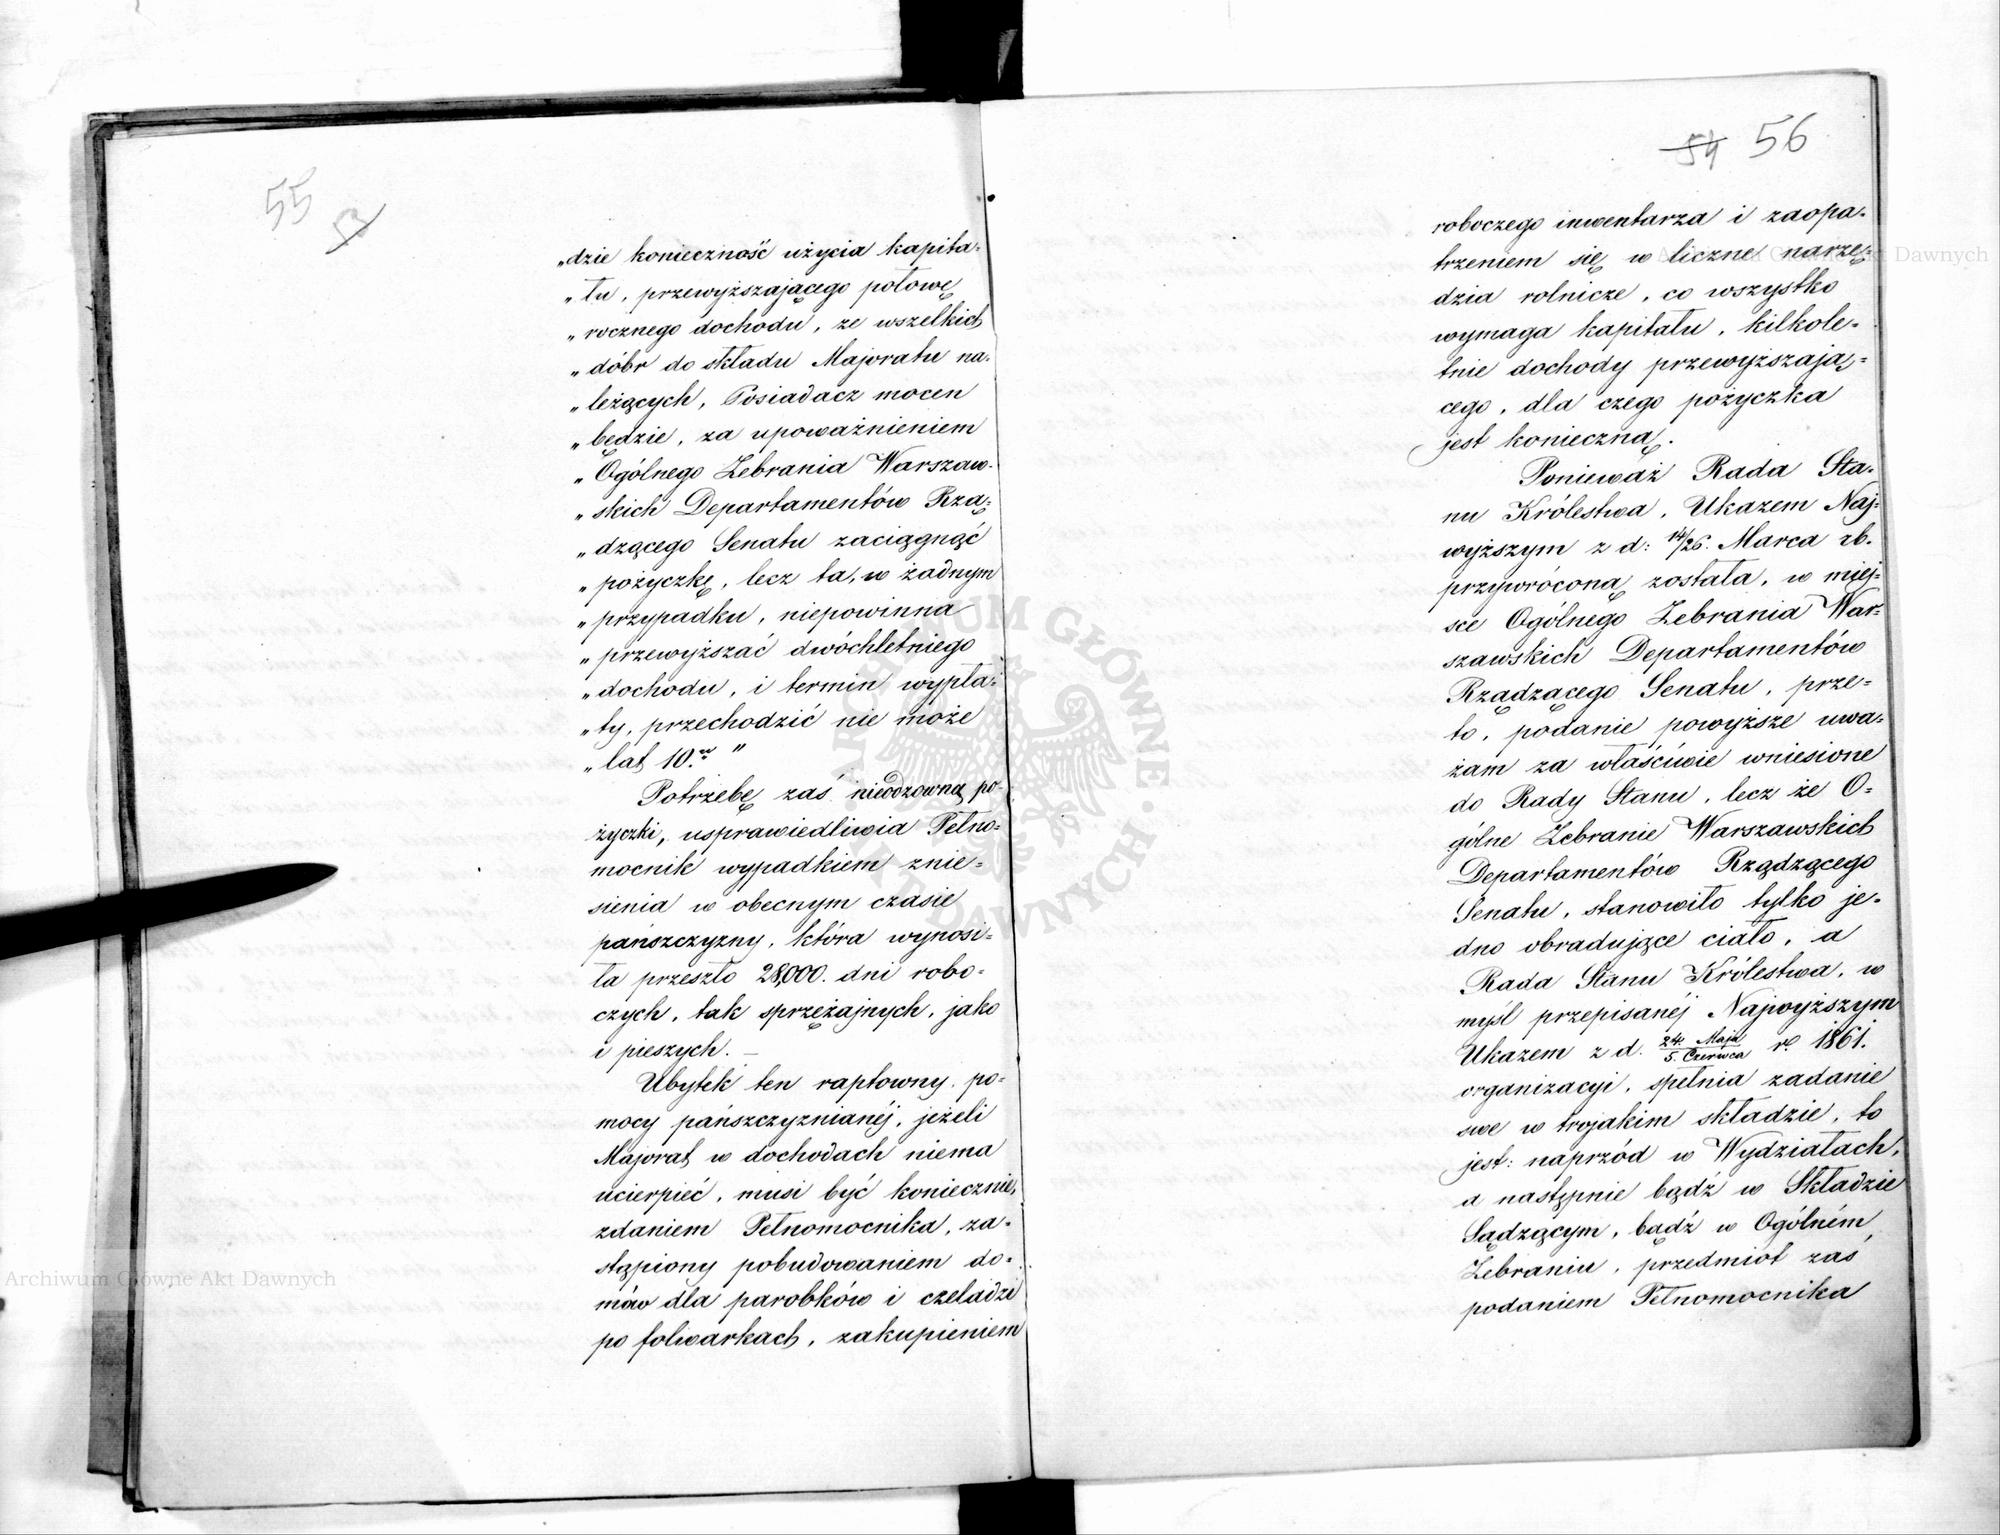 55
„dzie konieczność użycia kapita-
„łu, przewyższającego połowę
„rocznego dochodu, ze wszelkich
„dóbr do składu Majoratu na-
„leżących, Posiadacz mocen
„będzie, za upoważnieniem
„Ogólnego Zebrania Warszaw-
„skich Departamentów Rzą-
„dzącego Senatu zaciągnąć
„pożyczkę, lecz ta, w żadnym
„przypadku, niepowinna
„przewyższać dwóchletniego
„dochodu, i termin wypła-
„ty, przechodzić nie może
„lat 10. "
Potrzebę zaś nieodzowną po-
życzki, usprawiedliwia Pełno-
mocnik wypadkiem znie-
sienia w obecnym czasie
pańszczyzny, która wynosi-
ła przeszło 28,000. dni robo-
czych, tak sprzężajnych, jako
i pieszych. —
Ubytek ten raptowny, po-
mocy pańszczyznianéj, jeżeli
Majorat w dochodach niema
ucierpieć, musi być koniecznie,
zdaniem Pełnomocnika, za-
stąpiony pobudowaniem do-
mów dla parobków i czeladzi
po folwarkach, zakupieniem
54 56
roboczego inwentarza i zaopa-
trzeniem się w liczne narzę-
dzia rolnicze, co wszystko
wymaga kapitału, kilkole-
tnie dochody przewyższają-
cego, dla czego pożyczka
jest konieczną.
Ponieważ Rada Sta-
nu Królestwa, Ukazem Naj-
wyższym z d: 14/26. Marca rb.
przywróconą została, w miej-
sce Ogólnego Zebrania War-
szawskich Departamentów
Rządzącego Senatu, prze-
to, podanie powyższe uwa-
żam za właściwie wniesione
do Rady Stanu, lecz że O-
gólne Zebranie Warszawskich
Departamentów Rządzącego
Senatu, stanowiło tylko je-
dno obradujące ciało, a
Rada Stanu Królestwa, w
myśl przepisanéj Najwyższym
Ukazem z d. 24 Maja/5. Czerwca r. 1861.
organizacyi, spełnia zadanie
swe w trojakim składzie, to
jest: naprzód w Wydziałach,
a następnie bądź w Składzie
Sądzącym, bądź w Ogólném
Zebraniu, przedmiot zaś
podaniem Pełnomocnika
Archiwum Główne Akt Dawnych
Archiwum Główne Akt Dawnych
ARCHIWUM GŁÓWNE AKT DAWNYCH